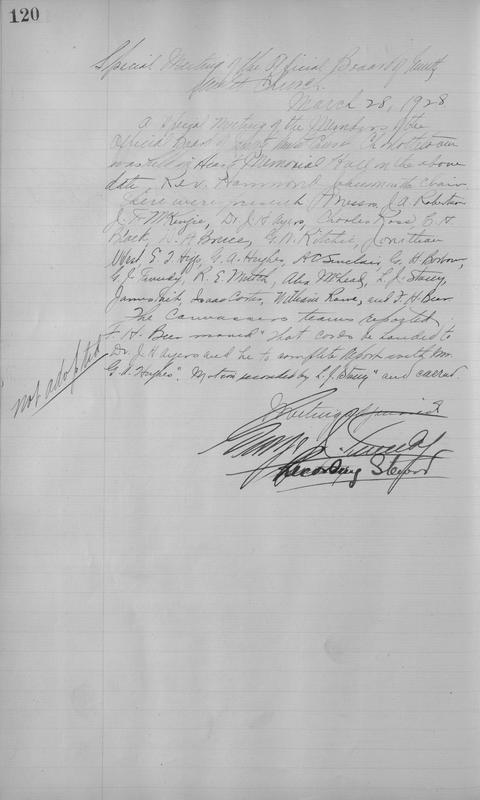 120
Special Meeting of the Official Board of Trinity
United Church.
March 28, 1928
A special meeting of the Members of the
Official Board of Trinity United Church Charlottetown
was held in Heartz Memorial Hall on the above
date, Rev. Hammond in the chair
There were present Messrs J. A. Robertson
J. H. McKenzie, Dr. J. H Ayers, Charles Ross E. H.
Black, W. A Bruce, G. W. Ritchie, Jonathan
West, E. T. Higgs, G. A. Hughes, H C Sinclair, G. H.
G. J. Tweedy, R. E. Mutch, Alex McLeod, L. J. Stacey,
James, Isaac Coles, William Rowe, and F. H. Beer
The Canvassers teams reported.
F. H. Beer moved "that cards be handed to
Dr. J. H Ayers and he to complete work with Mr.
G. A. Hughes". Motion seconded by L. J. Stacey" and carried.
not adopted
Meeting adjourned
George J. Tweedy
Recording Steward